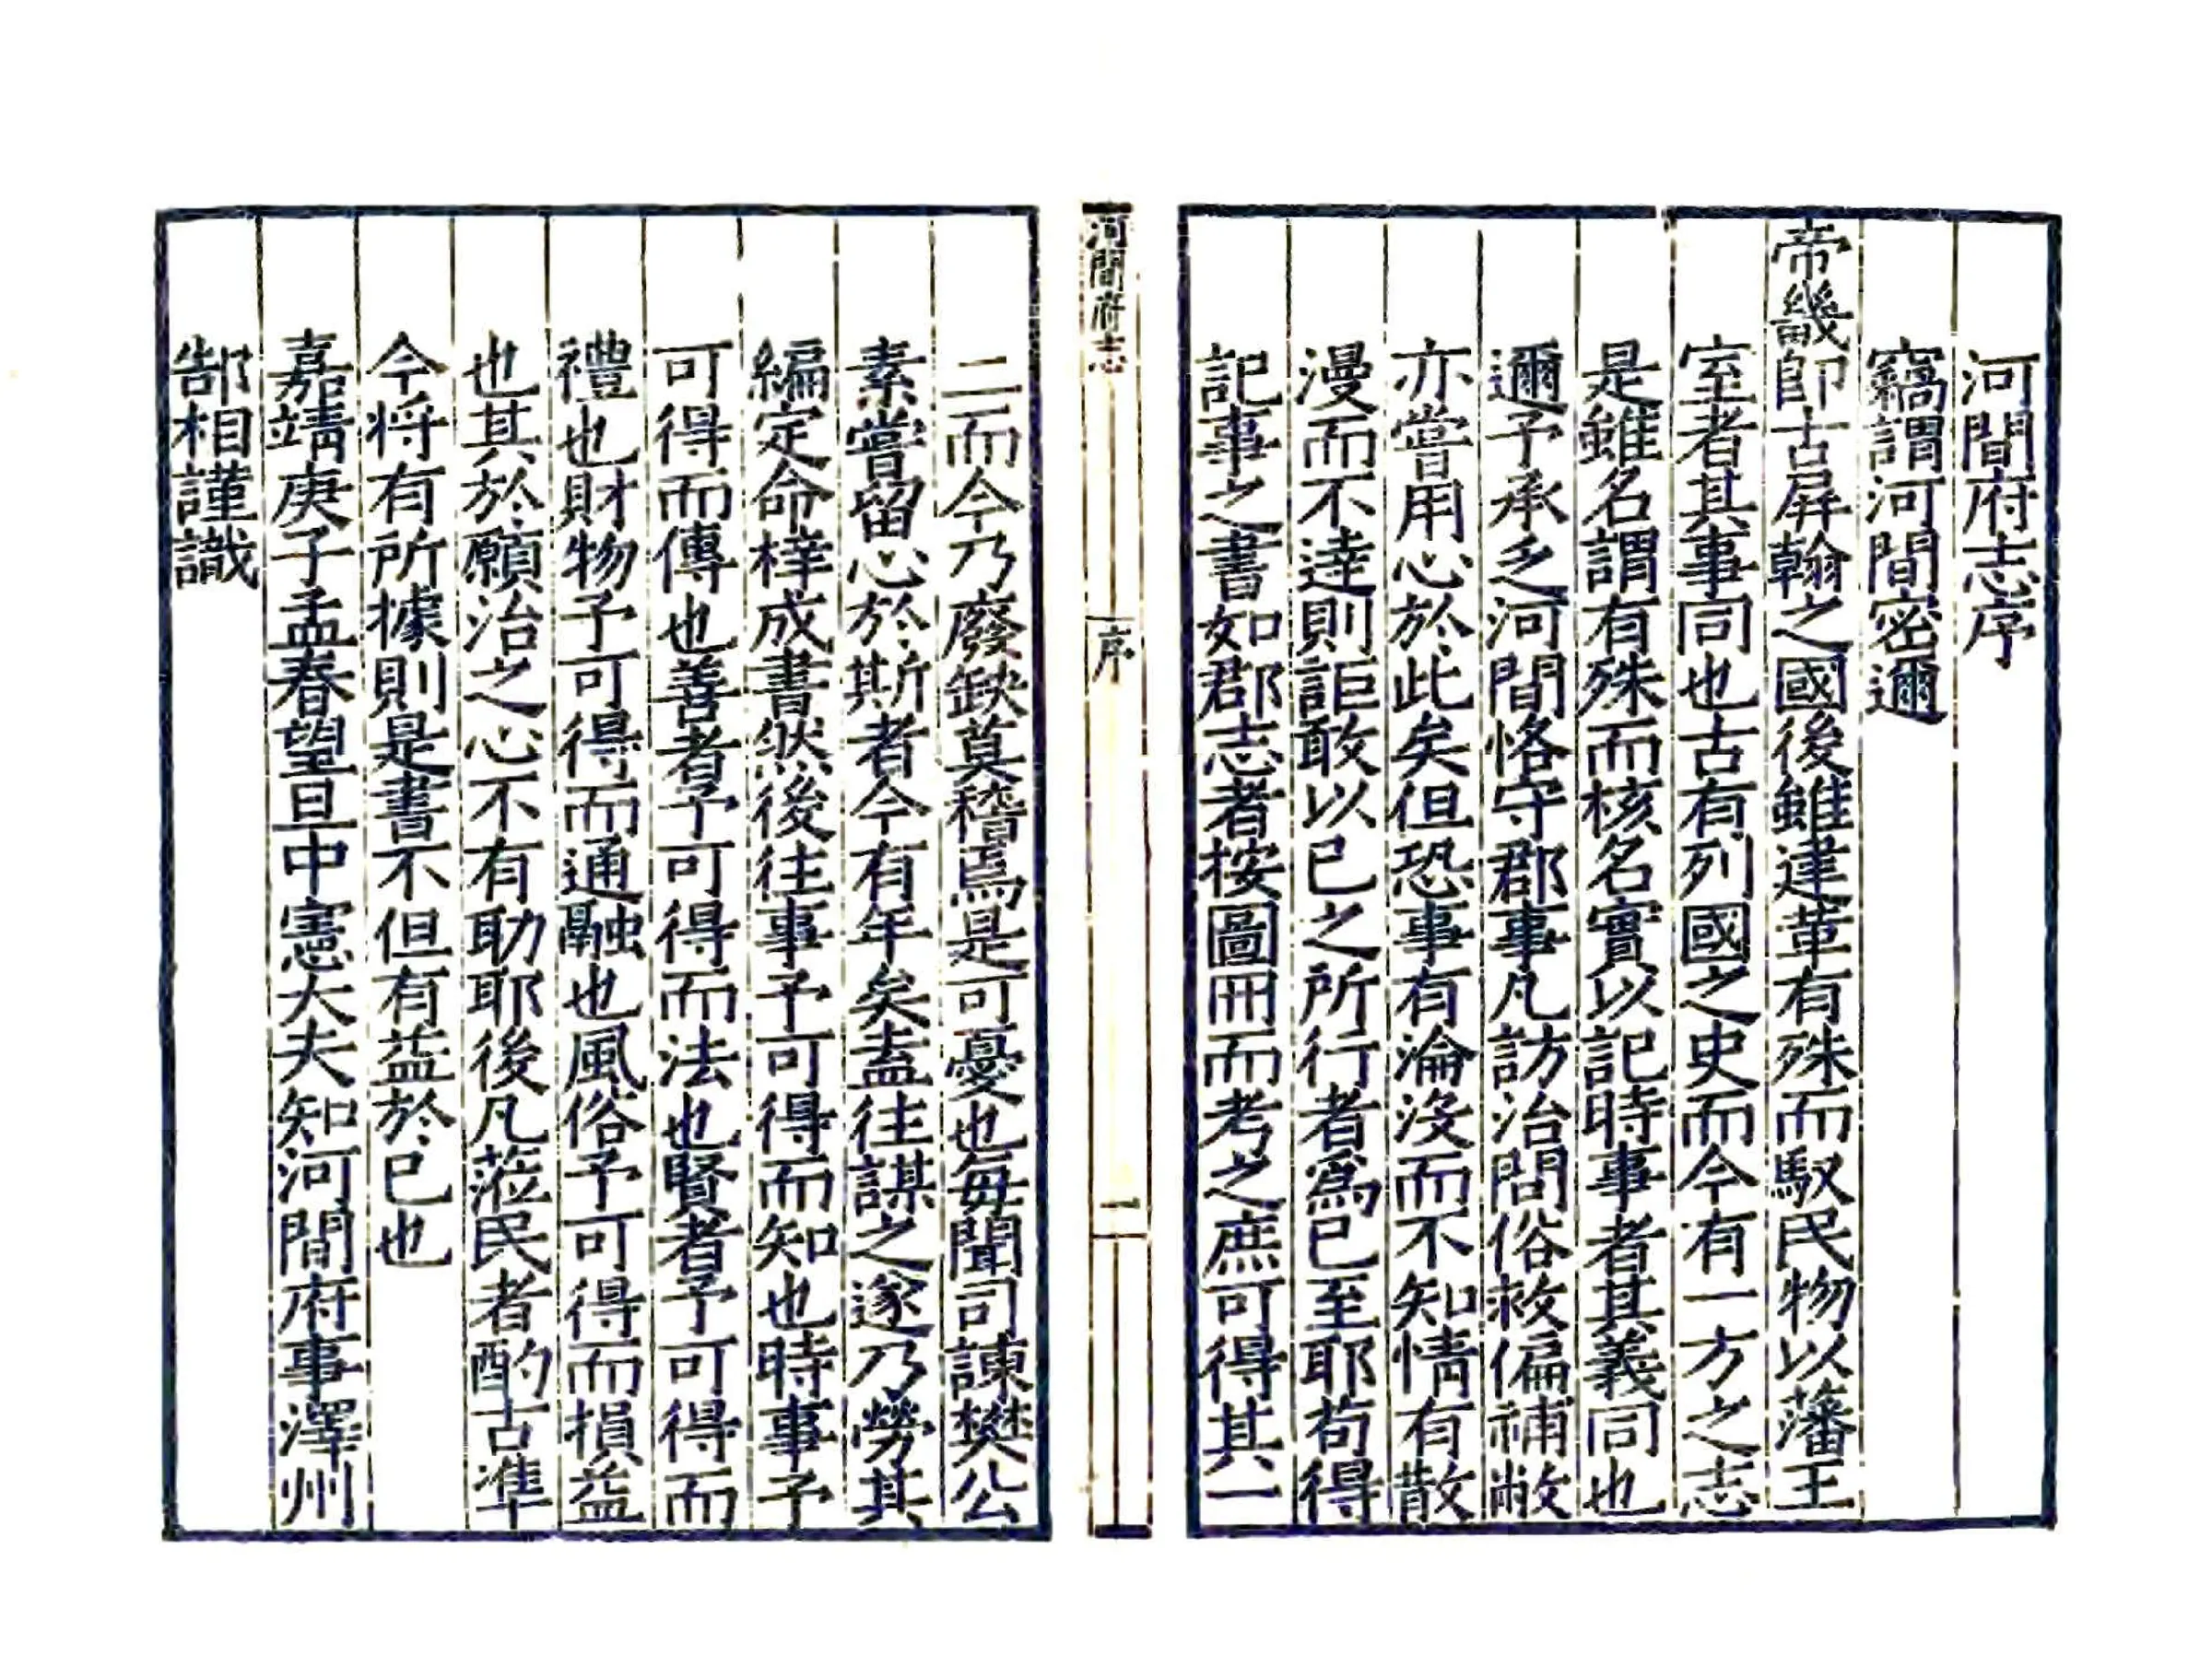 河間府志序
竊謂河間密邇
帝畿即古屏翰之國後雖建革有殊而馭民物以藩王
室者其事同也古有列國之史而今有一方之志
是雖名謂有殊而核名實以記時事者其義同也
邇予承乏河間恪守郡事凡訪治問俗救偏補敝
亦嘗用心於此矣但恐事有淪沒而不知情有散
漫而不達則詎敢以已之所行者爲已至耶苟得
記事之書如郡志者按圖冊而考之庶可得其一
河間府志
序
二
二而今乃廢缺莫稽焉是可憂也每聞司諫樊公
素嘗留心於斯者今有年矣盍往謀之遂乃勞其
編定命梓成書然後往事予可得而知也時事予
可得而傳也善者予可得而法也賢者予可得而
禮也財物予可得而通融也風俗予可得而損益
也其於願治之心不有助耶後凡蒞民者酌古準
今将有所據則是書不但有益於已也
嘉靖庚子孟春望旦中憲大夫知河間府事澤州
郜相謹識